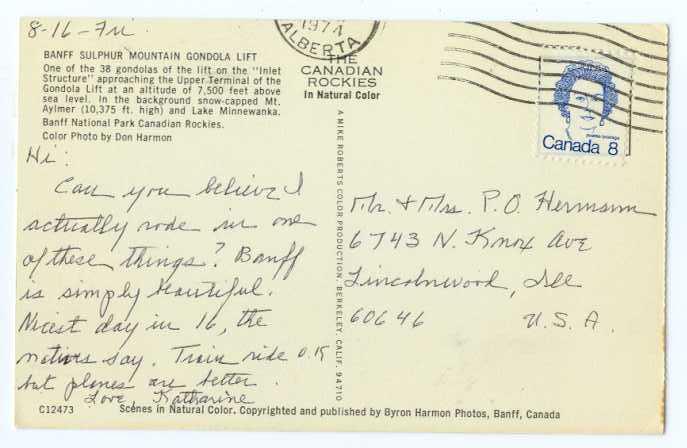 8-16-Fri
1974
ALBERTA
BANFF SULPHUR MOUNTAIN GONDOLA LIFT
One of the 38 gondolas of the lift on the "Inlet
Structure" approaching the Upper Terminal of the
Gondola Lift at an altitude of 7,500 feet above
sea level. In the background snow-capped Mt.
Aylmer (10,375 ft. high) and Lake Minnewanka.
Banff National Park Canadian Rockies.
Color Photo by Don Harmon
THE
CANADIAN
ROCKIES
In Natural Color
Canada 8
Hi:
Can you believe I
actually rode in one
of these things? Banff
is simply beautiful.
Nicest day in 16, the
natives say. Train ride O.K
but planes are better.
Love, Katharine
A MIKE ROBERTS COLOR PRODUCTION, BERKELEY, CALIF. 94710
Mr. + Mrs. P.O. Hermann
6743 N. Knox Ave
Lincolnwood, Ill
60646 U.S.A.
C12473 Scenes in Natural Color. Copyrighted and published by Byron Harmon Photos, Banff, Canada